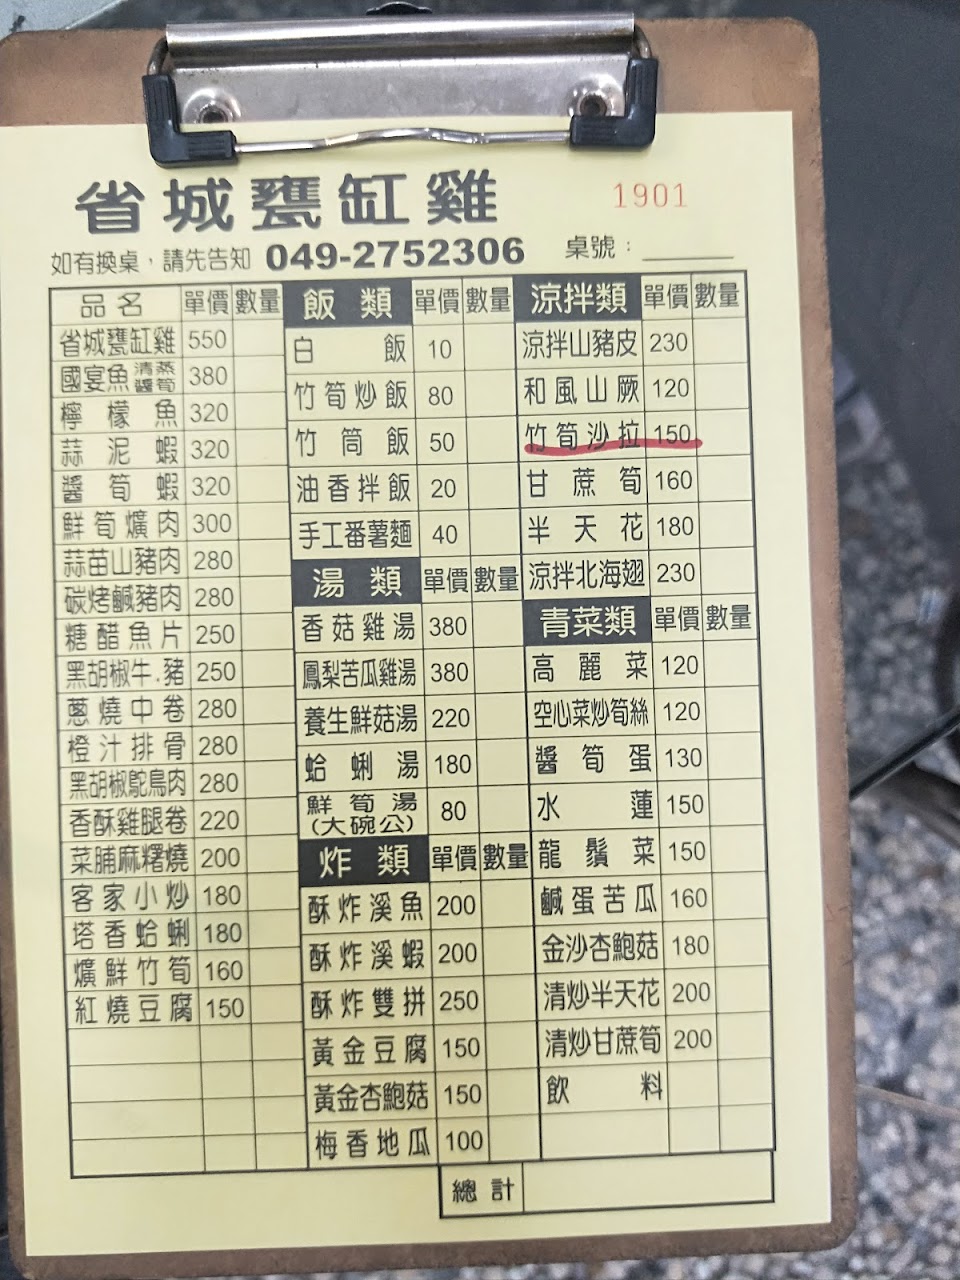 省城甕缸雞
1901
如有換桌，請先告知 049-2752306 桌號：
品名 單價 數量
省城甕缸雞 550
國宴魚 清蒸 醬筍 380
檸檬魚 320
蒜泥蝦 320
醬筍蝦 320
鮮筍爌肉 300
蒜苗山豬肉 280
碳烤鹹豬肉 280
糖醋魚片 250
黑胡椒牛.豬 250
蔥燒中卷 280
橙汁排骨 280
黑胡椒鴕鳥肉 280
香酥雞腿卷 220
菜脯麻糬燒 200
客家小炒 180
塔香蛤蜊 180
爌鮮竹筍 160
紅燒豆腐 150
飯類 單價 數量
白飯 10
竹筍炒飯 80
竹筒飯 50
油香拌飯 20
手工番薯麵 40
湯類 單價 數量
香菇雞湯 380
鳳梨苦瓜雞湯 380
養生鮮菇湯 220
蛤蜊湯 180
鮮筍湯
(大碗公) 80
炸類 單價 數量
酥炸溪魚 200
酥炸溪蝦 200
酥炸雙拼 250
黃金豆腐 150
黃金杏鮑菇 150
梅香地瓜 100
涼拌類 單價 數量
涼拌山豬皮 230
和風山厥 120
竹筍沙拉 150
甘蔗筍 160
半天花 180
涼拌北海翅 230
青菜類 單價 數量
高麗菜 120
空心菜炒筍絲 120
醬筍蛋 130
水蓮 150
龍鬚菜 150
鹹蛋苦瓜 160
金沙杏鮑菇 180
清炒半天花 200
清炒甘蔗筍 200
飲料
總計